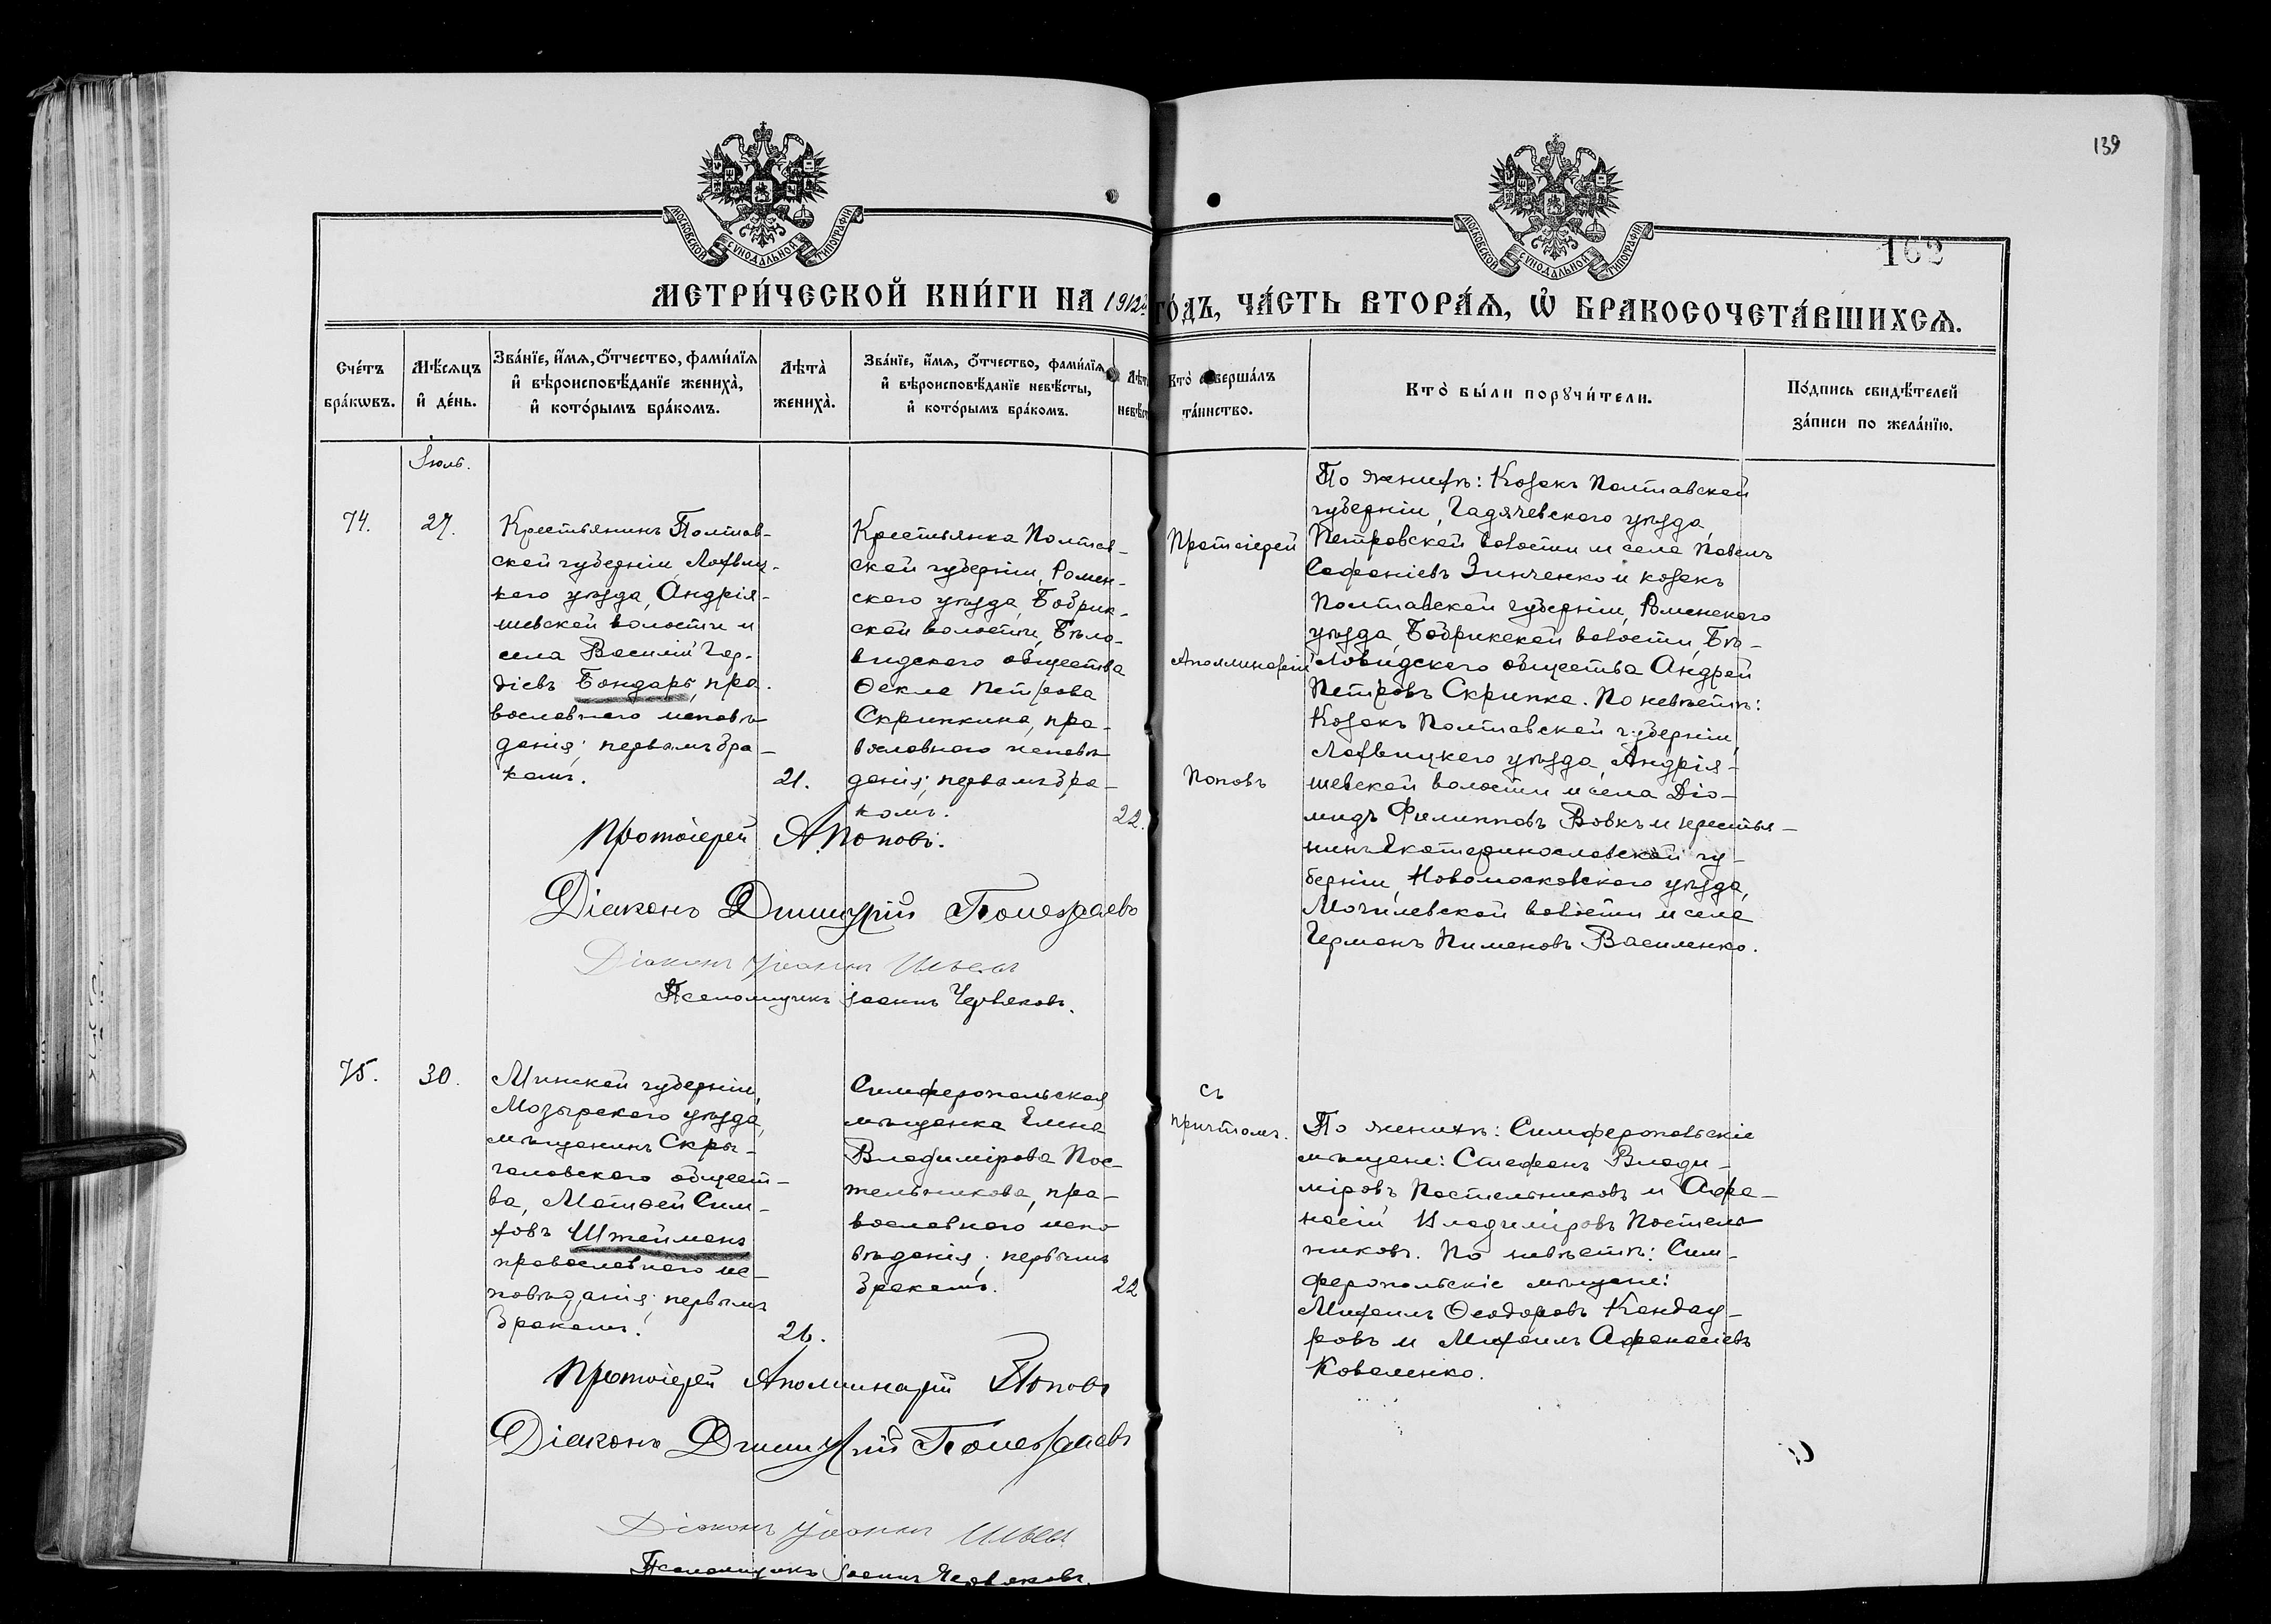 139
162
МОСКОВСКОЙ СѴНОДАЛЬНОЙ ТИПОГРАФІИ
МОСКОВСКОЙ СѴНОДАЛЬНОЙ ТИПОГРАФІИ
МЕТРИ́ЧЕСКОЙ КНИ́ГИ НА 1912й ГО́ДЪ, ЧА́СТЬ ВТОРА́Ѧ, Ѡ҆ БРАКОСОЧЕТА́ВШИХСѦ.
Сче́тъ
бра́кѡвъ.
Мѣ́сяцъ
и҆ де́нь.
Зва́нїе, и҆́мя, ѻ҆́тчество, фами́лїя
и҆ вѣроисповѣ́данїе жениха̀,
и҆ кото́рымъ бра́комъ.
Лѣта̀
жениха̀.
Зва́нїе, и҆́мя, ѻ҆́тчество, фами́лїя
и҆ вѣроисповѣ́данїе невѣ́сты,
и҆ кото́рымъ бра́комъ.
Лѣт
невѣс
Кто̀ соверша́лъ
та́инство.
Кто̀ бы́ли порꙋчи́тели.
По́дпись свидѣ́телей
за́писи по жела́нїю.
Іюль.
74.
27.
Крестьянинъ Полтав-
ской губерніи, Лохвиц-
каго уѣзда, Андрія-
шевской волости и
села Василій Гор-
діевъ Бондарь, пра-
вославнаго исповѣ-
данія; первымъ бра-
комъ.
21.
Крестьянка Полтав-
ской губерніи, Ромен-
скаго уѣзда, Бобрик-
ской волости, Бѣло-
видскаго общества
Ѳекла Петрова
Скрипкина, пра-
вославнаго исповѣ-
данія; первымъ бра-
комъ.
22.
Протоіерей
Аполлинарій
Поповъ
По женихѣ: Козакъ Полтавской
губерніи, Гадячевскаго уѣзда,
Петровской волости и села Павелъ
Софоніевъ Зинченко и козакъ
Полтавской губерніи, Роменскаго
уѣзда, Бобрикской волости, Бѣ-
ловидскаго общества Андрей
Петровъ Скрипка. По невѣстѣ:
Козакъ Полтавской губерніи,
Лохвицкаго уѣзда, Андрія-
шевской волости и села Діо-
мидъ Филипповъ Вовкъ и крестья-
нинъ Екатеринославской гу-
берніи, Новомосковскаго уѣзда,
Могилевской волости и села
Германъ Пименовъ Василенко.
Протоіерей А. Поповъ.
Діаконъ Димитрій
Діаконъ Іоаннъ
Псаломщикъ Іоаннъ Червяковъ.
75.
30.
Минской губерніи,
Мозырскаго уѣзда,
мѣщанинъ Скры-
галовскаго общест-
ва, Матѳей Сим-
ховъ Штейманъ
православнаго ис-
повѣданія; первымъ
бракомъ.
26.
Симферопольская
мѣщанка Елена
Владимірова Пос-
тельникова, пра-
вославнаго испо-
вѣданія; первымъ
бракомъ.
22
съ
причтомъ.
По женихѣ: Симферопольскіе
мѣщане: Стефанъ Влади-
міровъ Постельниковъ и Афа-
насій Владиміровъ Постель-
никовъ. По невѣстѣ: Сим-
феропольскіе мѣщане:
Михаилъ Ѳеодоровъ Кандау-
ровъ и Михаилъ Афанасіевъ
Коваленко.
Протоіерей Аполлинарій Поповъ
Діаконъ Димитрій
Діаконъ Іоаннъ
Псаломщикъ Іоаннъ Червяковъ.